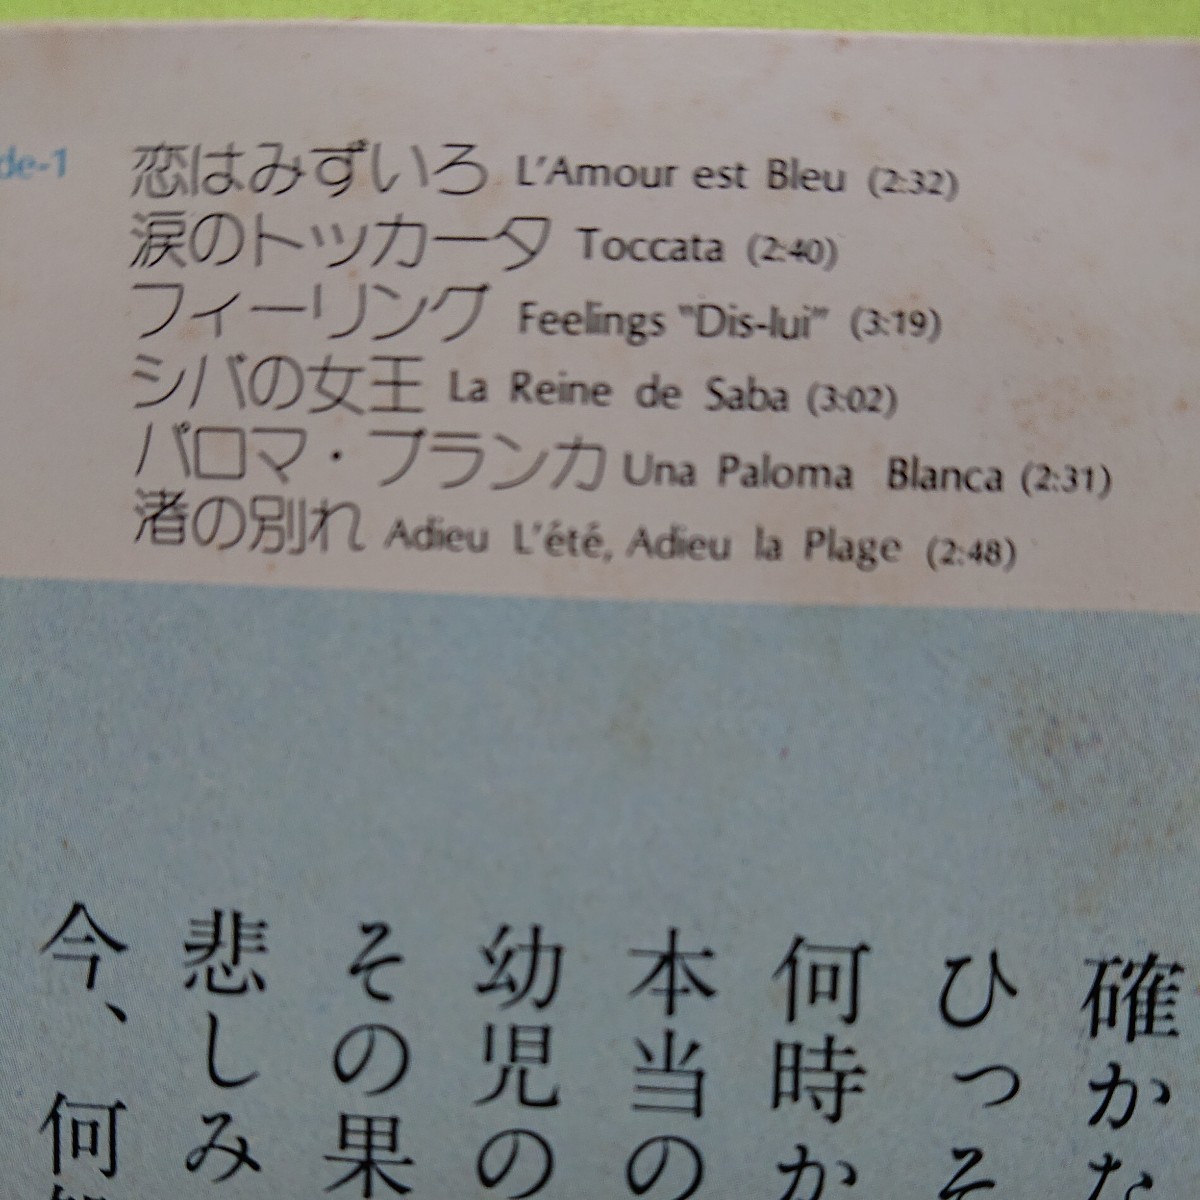 de-1
恋はみずいろ L'Amour est Bleu (2:32)
涙のトッカータ Toccata (2:40)
フィーリング Feelings "Dis-lui" (3:19)
シバの女王 La Reine de Saba (3:02)
パロマ・ブランカ Una Paloma Blanca (2:31)
渚の別れ Adieu L'été, Adieu la Plage (2:48)
確かな
ひっそ
何時か
本当の
幼児の
その果
悲しみ
今、何